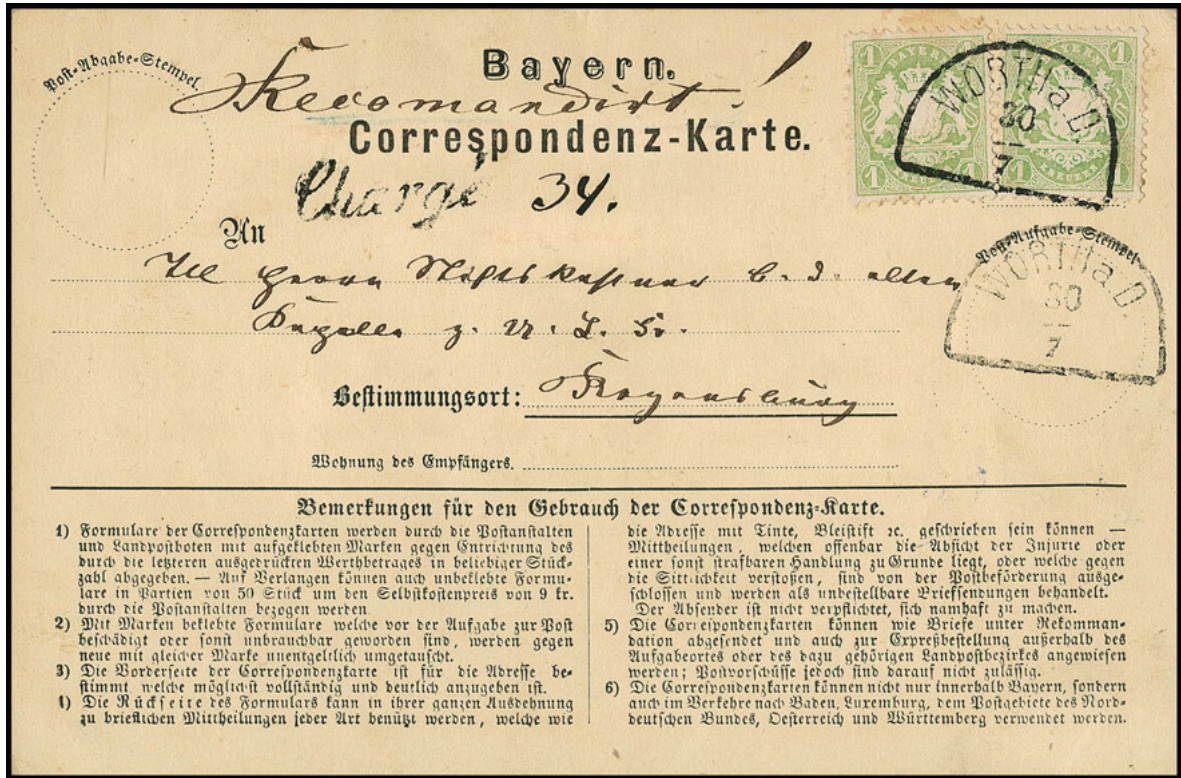 Post-Abgabe-Stempel.
Bayern.
Recomandirt!
Correspondenz-Karte.
Chargé 34.
1 BAYERN 1
1 KREUZER 1
WÖRTH a.D.
30
7
An
Herrn
alten
Kapelle z. U. L. Fr.
Post-Aufgabe-Stempel.
WÖRTH a D.
30
7
Bestimmungsort: Regensburg
Wohnung des Empfängers.
Bemerkungen für den Gebrauch der Correspondenz-Karte.
1) Formulare der Correspondenzkarten werden durch die Postanstalten
und Landpostboten mit aufgeklebten Marken gegen Entrichtung des
durch die letzteren ausgedrückten Werthbetrages in beliebiger Stück-
zahl abgegeben. — Auf Verlangen können auch unbeklebte Formu-
lare in Partien von 50 Stück um den Selbstkostenpreis von 9 kr.
durch die Postanstalten bezogen werden
2) Mit Marken beklebte Formulare welche vor der Aufgabe zur Post
beschädigt oder sonst unbrauchbar geworden sind, werden gegen
neue mit gleicher Marke unentgeltlich umgetauscht.
3) Die Vorderseite der Correspondenzkarte ist für die Adresse be-
stimmt welche möglichst vollständig und deutlich anzugeben ist.
4) Die Rückseite des Formulars kann in ihrer ganzen Ausdehnung
zu brieflichen Mittheilungen jeder Art benützt werden, welche wie
die Adresse mit Tinte, Bleistift ꝛc. geschrieben sein können —
Mittheilungen, welchen offenbar die Absicht der Injurie oder
einer sonst strafbaren Handlung zu Grunde liegt, oder welche gegen
die Sittlichkeit verstoßen, sind von der Postbeförderung ausge-
schlossen und werden als unbestellbare Briefsendungen behandelt.
Der Absender ist nicht verpflichtet, sich namhaft zu machen.
5) Die Correspondenzkarten können wie Briefe unter Rekomman-
dation abgesendet und auch zur Expreßbestellung außerhalb des
Aufgabeortes oder des dazu gehörigen Landpostbezirkes angewiesen
werden; Postvorschüsse jedoch sind darauf nicht zulässig.
6) Die Correspondenzkarten können nicht nur innerhalb Bayern, sondern
auch im Verkehre nach Baden, Luxemburg, dem Postgebiete des Nord-
deutschen Bundes, Oesterreich und Württemberg verwendet werden.